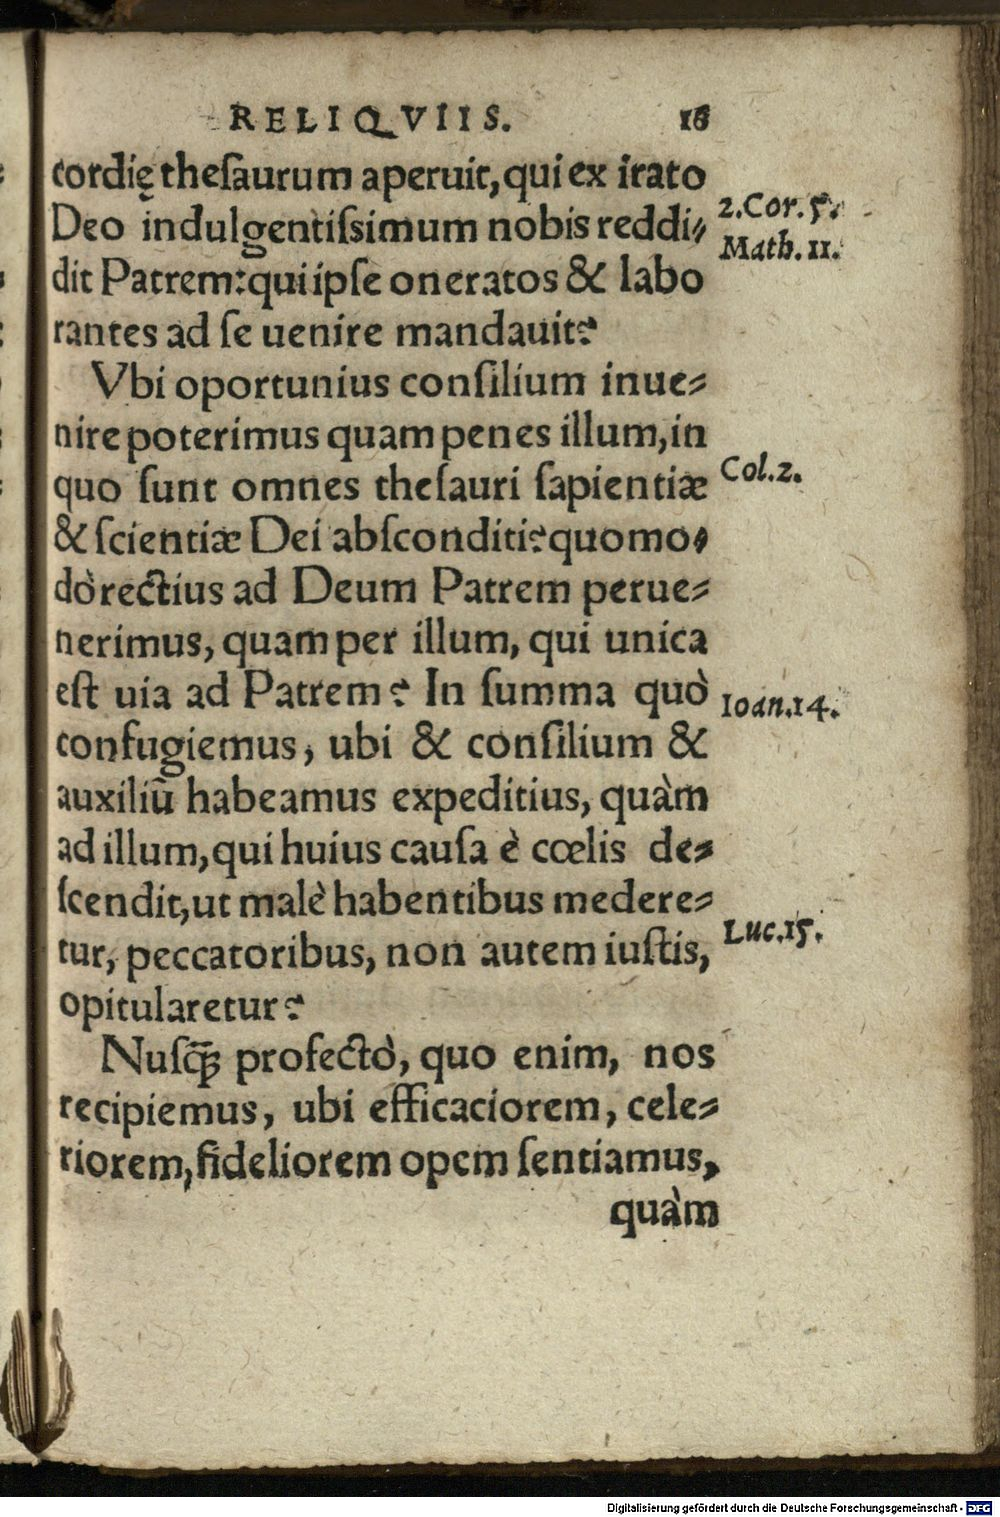 RELIQVIIS. 16
cordię theſaurum aperuit, qui ex irato
Deo indulgentiſsimum nobis reddi⸗
2.Cor.5.
dit Patrem: qui ipſe oneratos & labo
Math.11.
rantes ad ſe uenire mandauit?
Vbi oportunius conſilium inue⸗
nire poterimus quam penes illum, in
quo ſunt omnes theſauri ſapientiæ
Col.2.
& ſcientiæ Dei abſconditi? quomo⸗
dò rectius ad Deum Patrem perue⸗
nerimus, quam per illum, qui unica
est uia ad Patrem? In ſumma quò
Ioan.14.
confugiemus, ubi & conſilium &
auxiliũ habeamus expeditius, quàm
ad illum, qui huius cauſa è cœlis de⸗
ſcendit, ut malè habentibus medere⸗
tur, peccatoribus, non autem iuſtis,
Luc.15.
opitularetur?
Nuſꝗ̃ profectò, quo enim, nos
recipiemus, ubi efficaciorem, cele⸗
riorem, fideliorem opem ſentiamus,
quàm
Digitalisierung gefördert durch die Deutsche Forschungsgemeinschaft - DFG